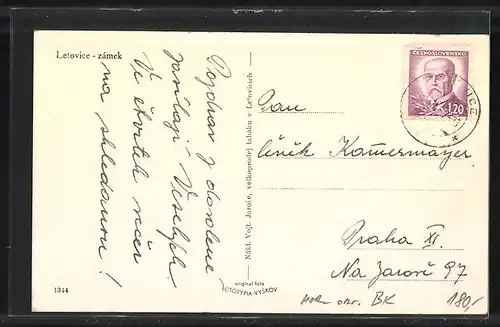 Letovice - zámek
Pozdrav z dovolené
posílají Veselých.
Ve čtvrtek večer
na shledanou!
1344
Nákl. Vojt. Jarože, velkoprodej tabáku v Letovicích
original foto
FOTOTYPIA-VYŠKOV
ČESKOSLOVENSKO
1.20
Pan
Kamermayer
Praha XI.
Na Jarově 97
BK 180,-